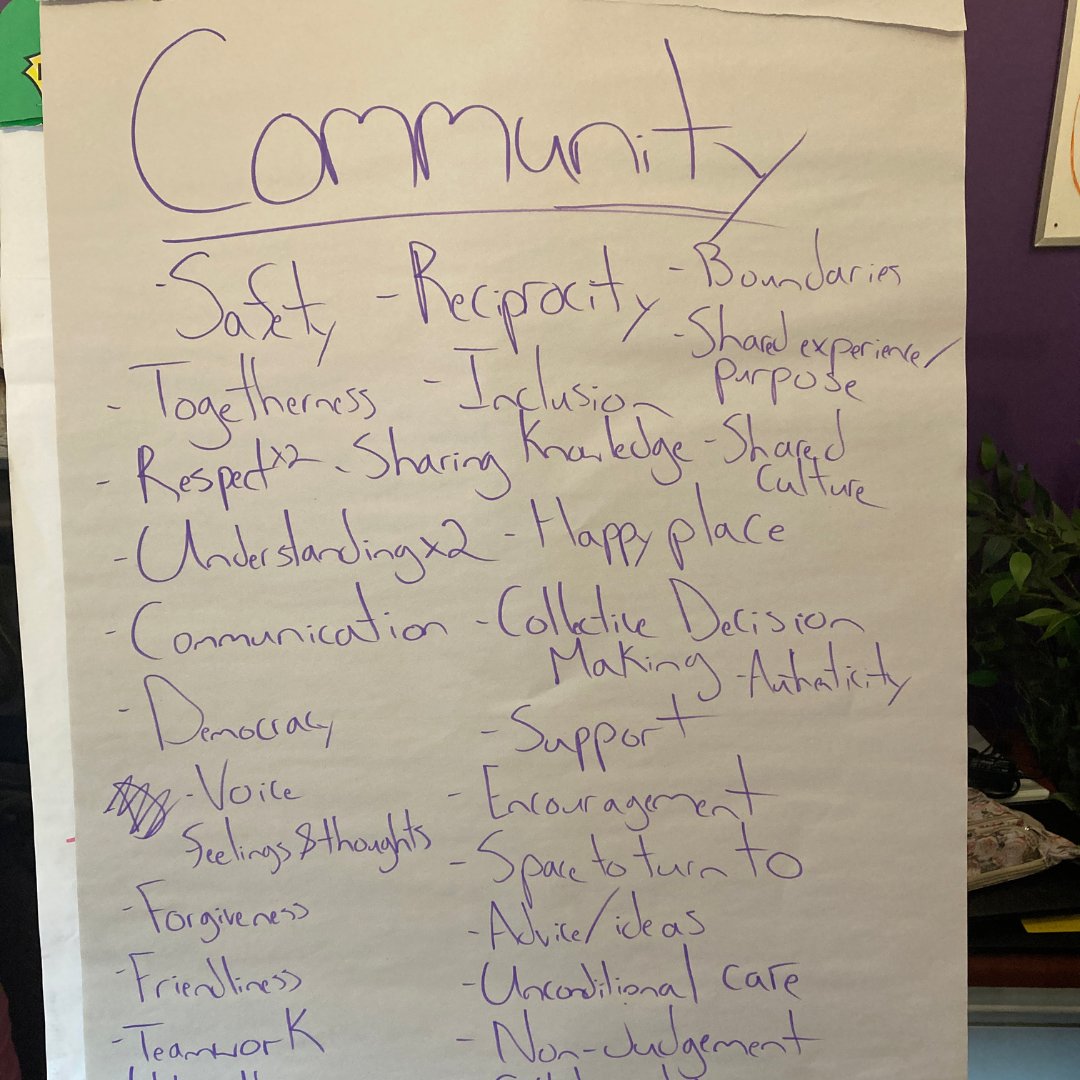 Community
-Safety -Reciprocity -Boundaries
-Shared experience/
purpose
-Togetherness -Inclusion
-Respect x2 -Sharing Knowledge -Shared
Culture
-Understanding x2 -Happy place
-Communication -Collective Decision
Making -Authenticity
-Democracy -Support
-Voice -Encouragement
feelings & thoughts -Space to turn to
-Forgiveness -Advice/ideas
-Friendliness -Unconditional care
-Teamwork -Non-Judgement